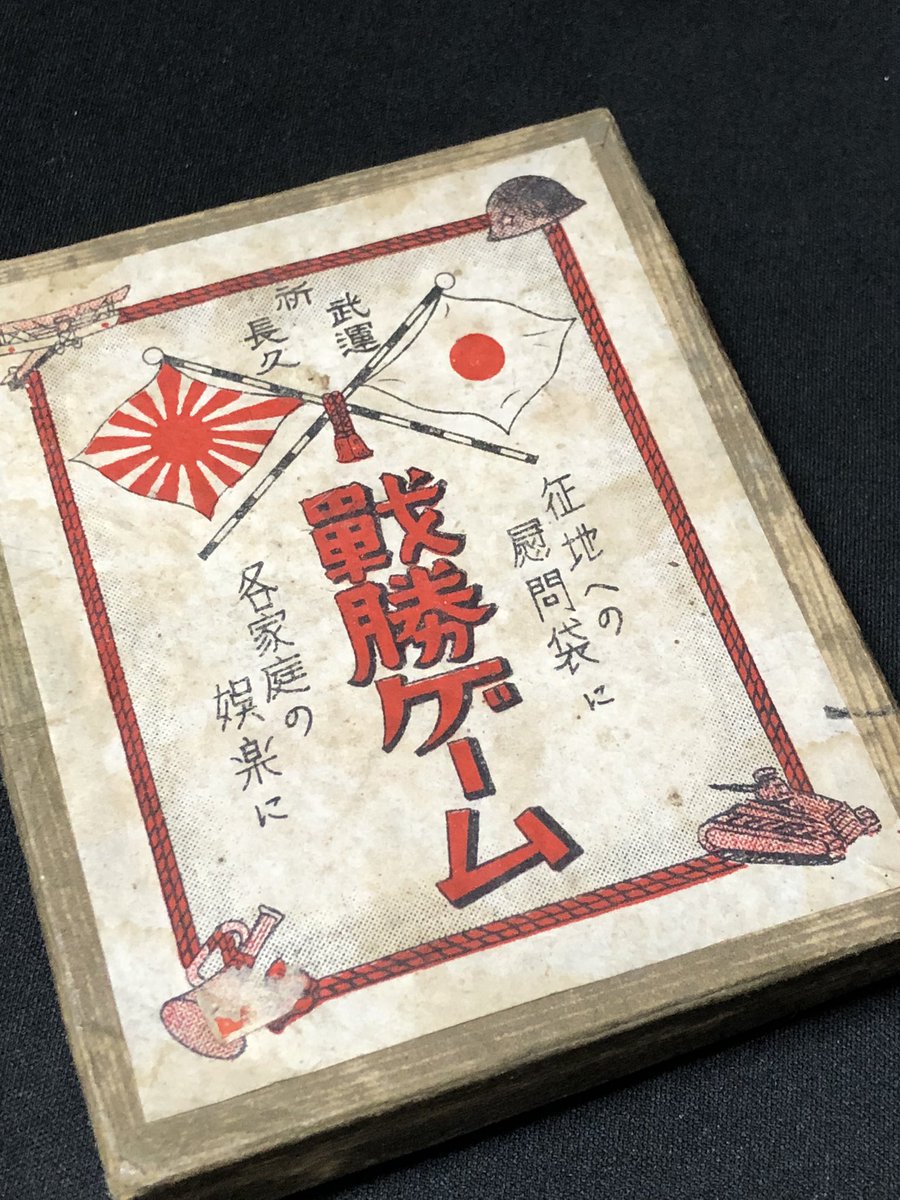 祈
武運
長久
征地への
慰問袋に
戰勝ゲーム
各家庭の
娯楽に